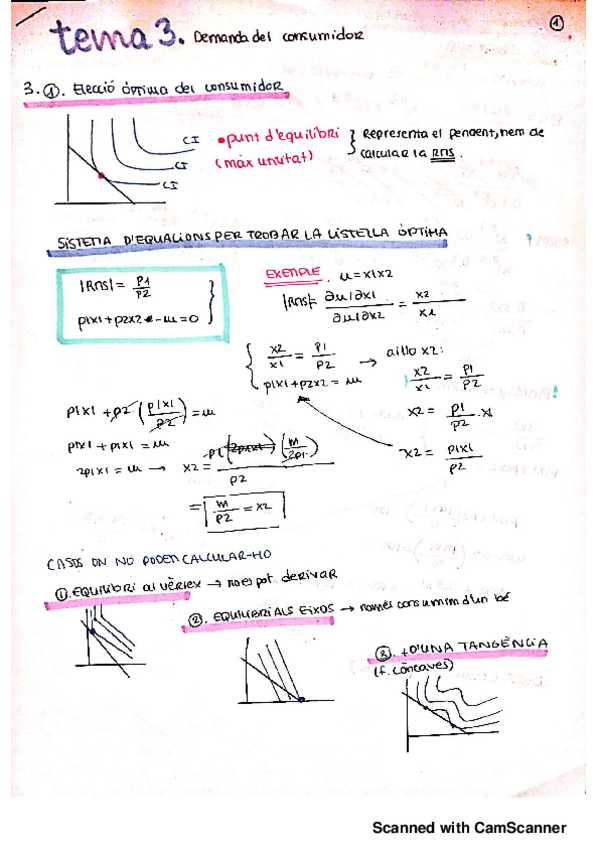 tema 3. Demanda del consumidor
1
3.①. Elecció óptima del consumidor
CI
CI
CI
• punt d'equilibri
(màx utilitat)
Representa el pendent, hem de
calcular la RMS.
SISTEMA D'EQUACIONS PER TROBAR LA CISTELLA ÒPTIMA
|RMS| = P1/P2
P1X1 + P2X2 - m = 0
EXEMPLE. u = x1x2
|RMS| = ∂u/∂x1 / ∂u/∂x2 = x2/x1
x2/x1 = P1/P2
P1X1 + P2X2 = m
→ aïllo x2:
x2/x1 = P1/P2
x2 = P1/P2 · x1
x2 = P1X1/P2
P1X1 + P2 (P1X1/P2) = m
P1X1 + P1X1 = m
2P1X1 = m → x2 = P1 (m/2P1) / P2
= m/P2 = x2
CASOS ON NO PODEM CALCULAR-HO
①. EQUILIBRI al vèrtex → no es pot derivar
②. EQUILIBRI ALS EIXOS → només consumim d'un bé
③. +D'UNA TANGÈNCIA
(f. còncaves)
Scanned with CamScanner